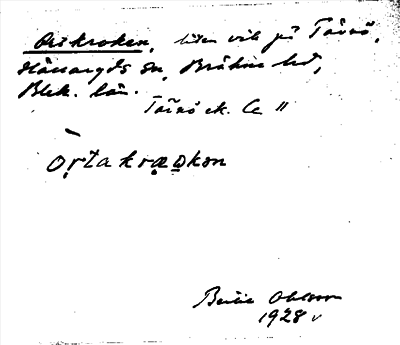 Örtakroken, liten vik på Tärnö,
Hällaryds sn, Bräkne hd,
Blek. län.
Tärnö ek. Ca 11
Bertil Ohlsson
1928